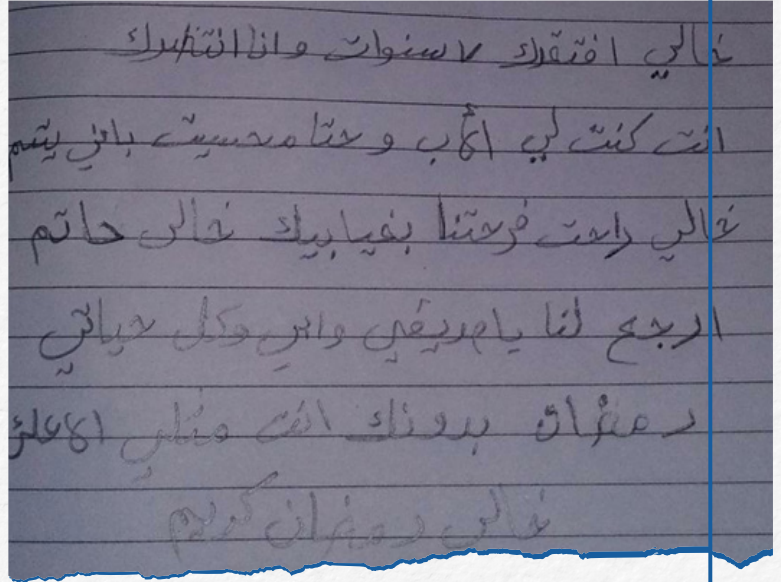 خالي افتقدك ٧ سنوات وانا انتظرك
انت كنت لي الأب و حتا محسيت باني يتيم
خالي راحت فرحتنا بغيابيك خالي حاتم
ارجع لنا ياصديقي وابي وكل حياتي
رمضان بدونك انت مثلي الاعلى
خالي رمضان كريم